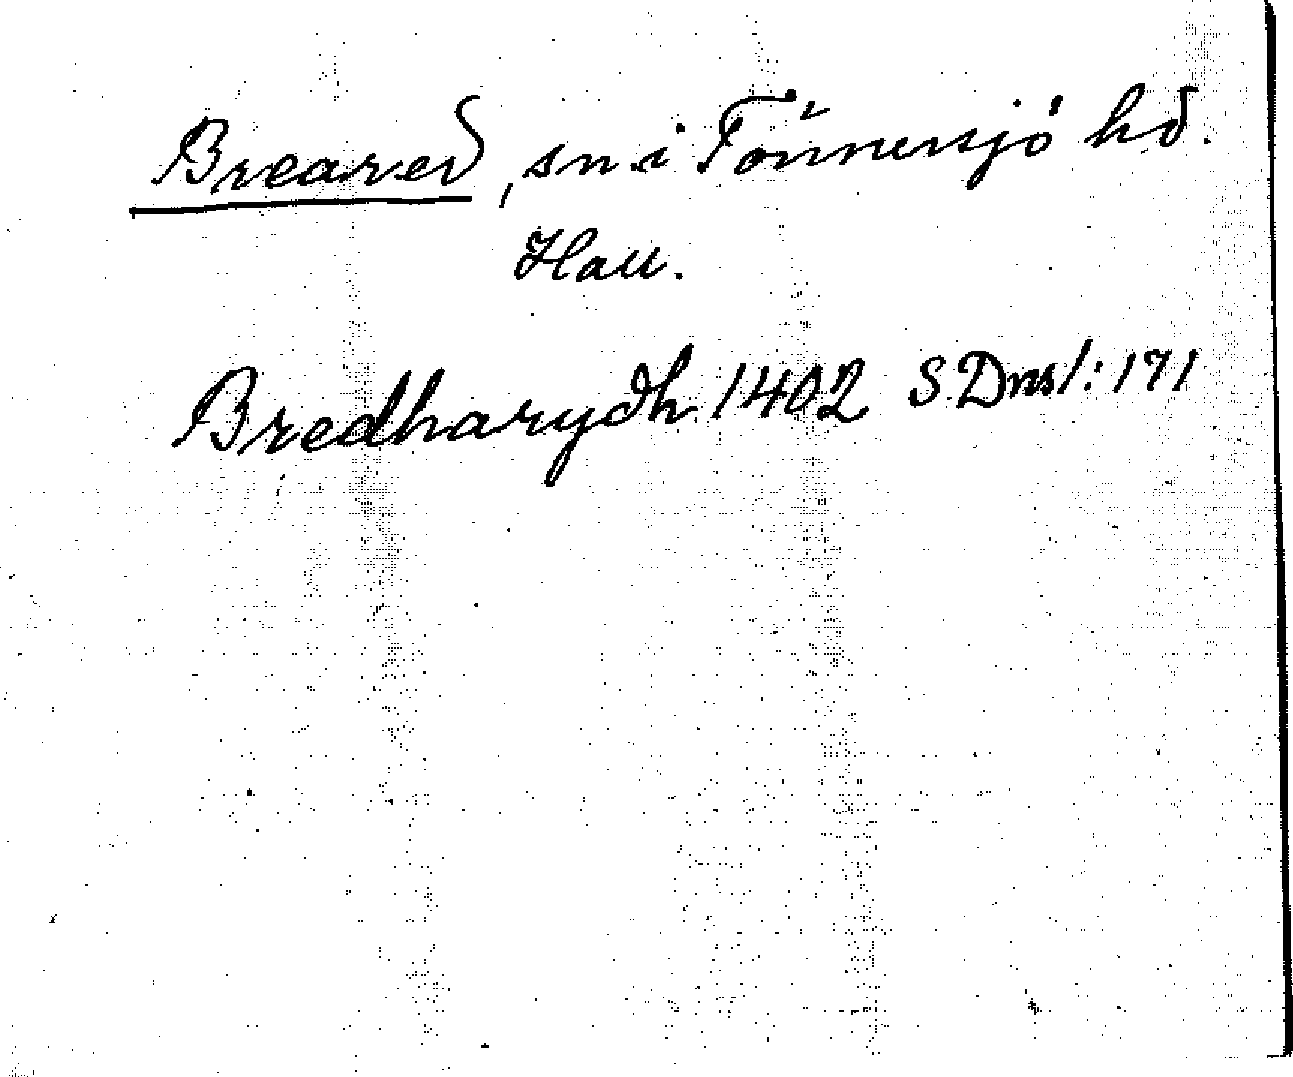 Breared, sn i Tönnersjö hd.
Hall.
Bredharydh 1402 SDns 1: 171